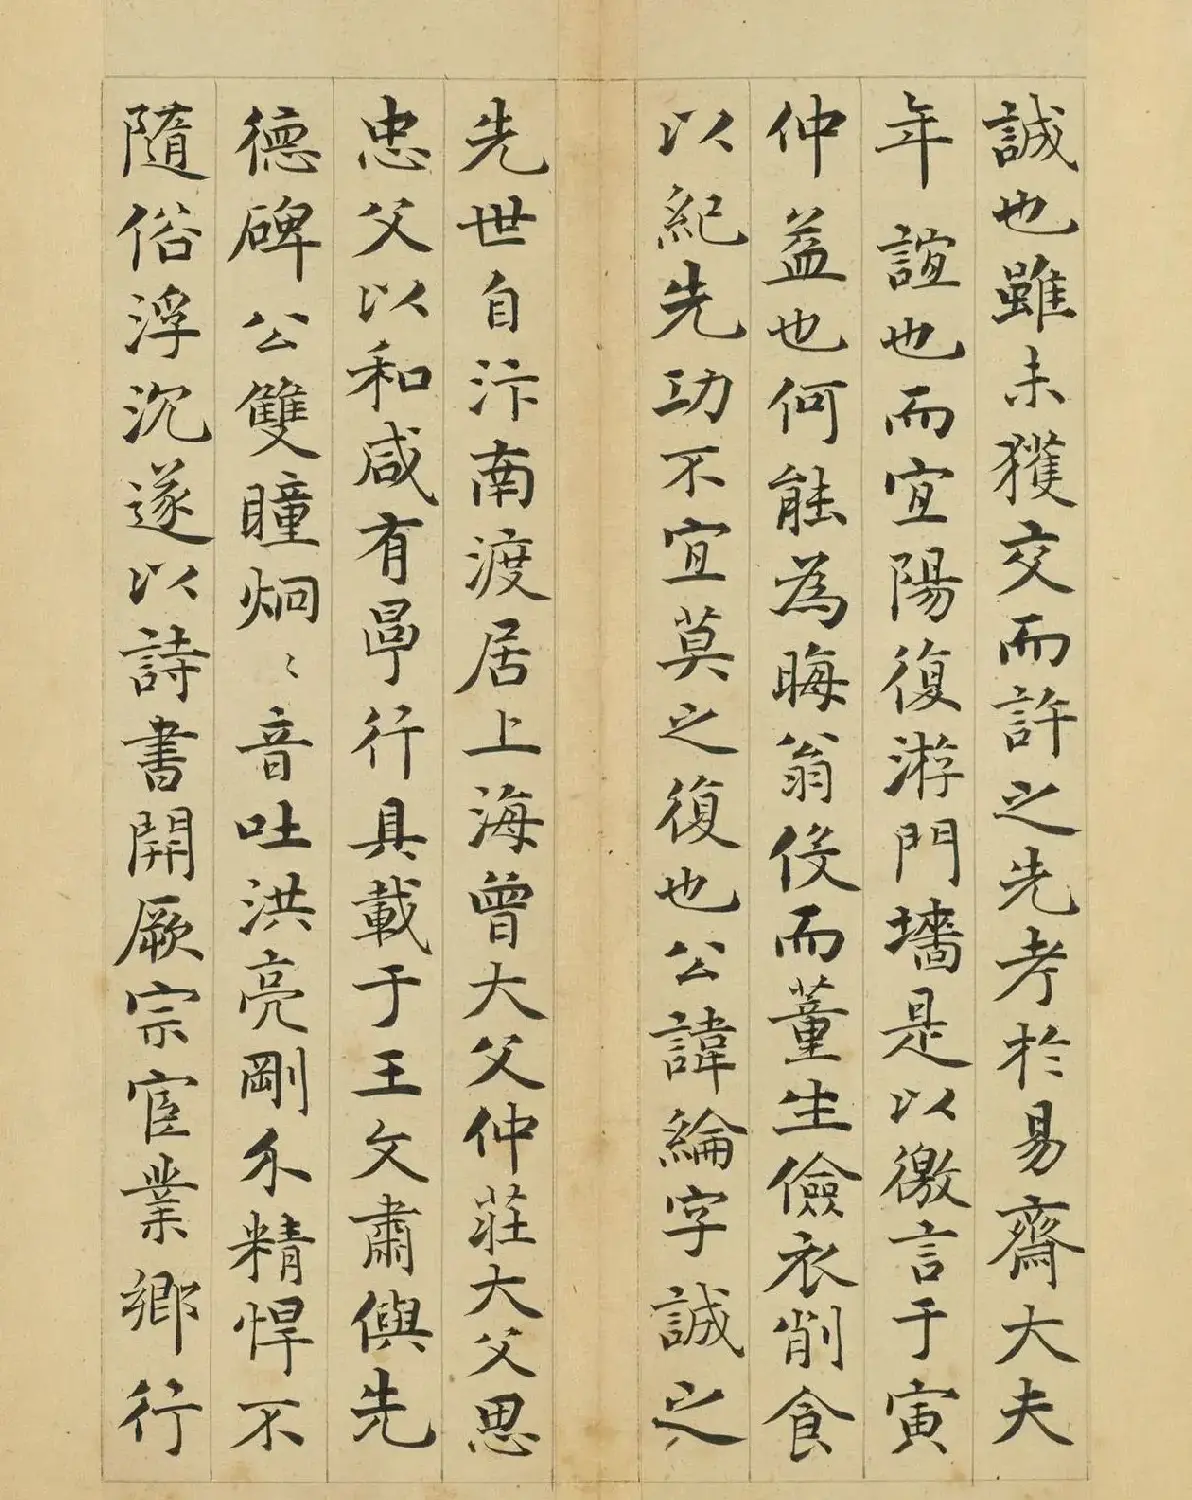 誠也雖未獲交而許之先考於易齋大夫
年誼也而宜陽復游門墻是以徼言于寅
仲益也何能為晦翁侵而董生儉衣削食
以紀先功不宜莫之復也公諱綸字誠之
先世自汴南渡居上海曾大父仲莊大父思
忠父以和咸有㫗行具載于王文肅與先
德碑公雙瞳炯〻音吐洪亮剛介精悍不
隨俗浮沉遂以詩書開厥宗宦業鄉行